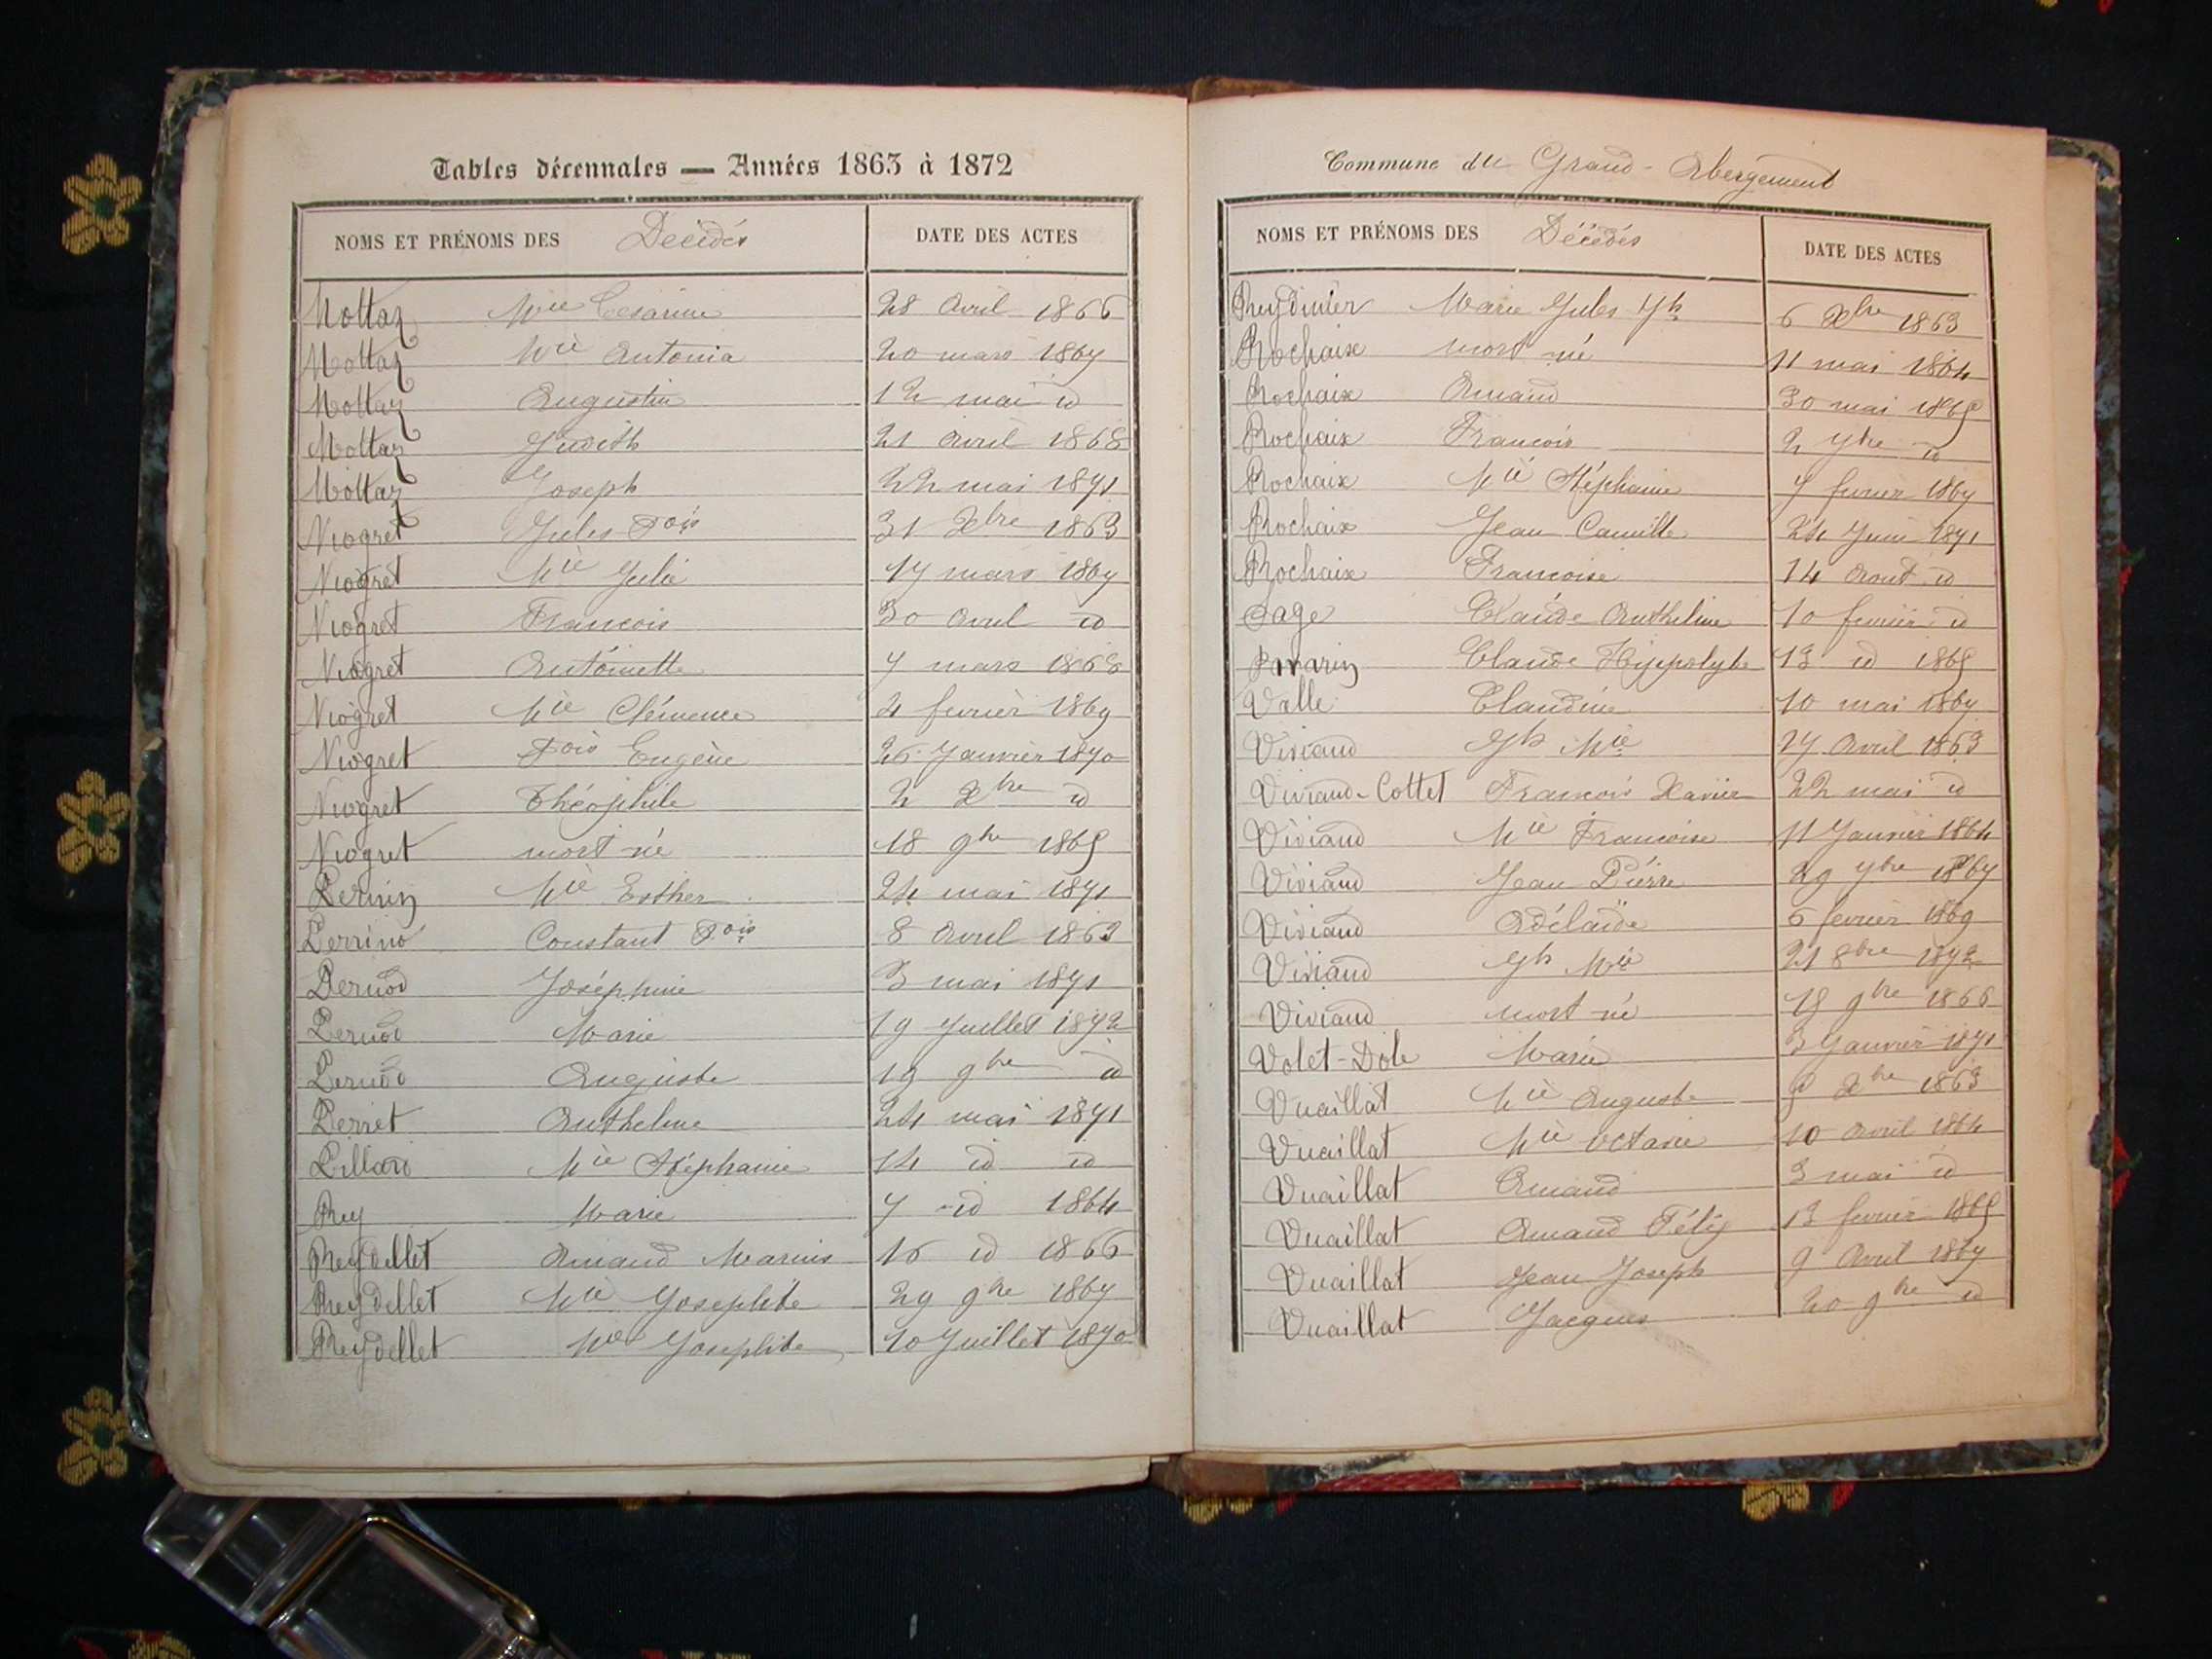 Tables décennales — Années 1863 à 1872
NOMS ET PRÉNOMS DES Décédés DATE DES ACTES
Mottaz Mie Césarine 28 Avril 1866
Mottaz Mie Antonia 20 mars 1867
Mottaz Augustin 12 mai id
Mottaz Judith 21 Avril 1868
Mottaz Joseph 22 mai 1871
Niogret Jules Fois 31 Xbre 1863
Niogret Mie Julie 17 mars 1867
Niogret François 30 Avril id
Niogret Antoinette 7 mars 1868
Niogret Mie Clémence 4 fevrier 1869
Niogret Fois Eugène 26 Janvier 1870
Niogret Théophile 2 Xbre id
Niogret mort né 18 9bre 1865
Pernin Mie Esther 24 mai 1871
Perrino Constant Fois 8 Avril 1863
Pernod Joséphine 3 mai 1871
Pernod Marie 19 Juillet 1872
Pernod Auguste 19 9bre id
Perret Anthelme 24 mai 1871
Pillard Mie Stéphanie 14 id id
Rey Marie 7 id 1864
Reydellet Amand Marius 16 id 1866
Reydellet Mie Josephte 29 9bre 1867
Reydellet Mie Josephte 10 Juillet 1870
Commune du Grand-Abergement
NOMS ET PRÉNOMS DES Décédés DATE DES ACTES
Reydinier Marie Jules Jh 6 Xbre 1863
Rochaix mort né 11 mai 1864
Rochaix Amand 30 mai 1865
Rochaix François 2 7bre id
Rochaix Mie Stéphanie 7 fevrier 1867
Rochaix Jean Camille 24 Juin 1871
Rochaix Françoise 14 Aout id
Sage Claude Anthelme 10 fevrier id
Claude Hippolyte 13 id 1865
Valle Claudine 10 mai 1867
Viviand Jh Mie 27 Avril 1863
Viviand-Cottet François Xavier 22 mai id
Viviand Mie Françoise 11 Janvier 1864
Viviand Jean Pierre 29 7bre 1867
Viviand Adélaïde 6 fevrier 1869
Viviand Jh Mie 21 8bre 1872
Viviand mort né 18 9bre 1866
Volet-Dole Marie 3 Janvier 1871
Vuaillat Mie Auguste Xbre 1863
Vuaillat Mie Octavie 10 Avril 1864
Vuaillat Amand 3 mai id
Vuaillat Amand Félix 13 fevrier 1865
Vuaillat Jean Joseph 9 Avril 1867
Vuaillat Jacques 20 9bre id